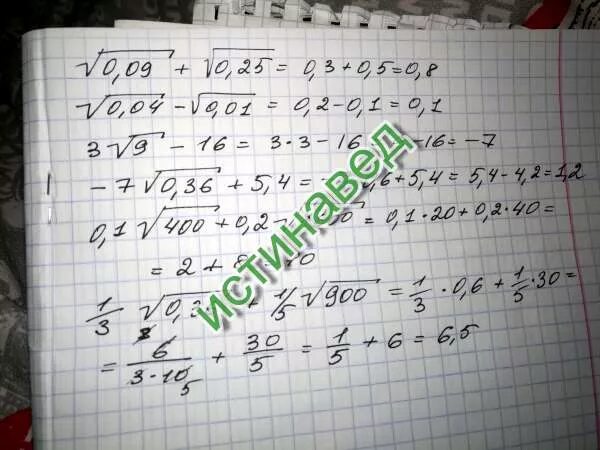 √0,09 + √0,25 = 0,3 + 0,5 = 0,8
√0,04 - √0,01 = 0,2 - 0,1 = 0,1
3√9 - 16 = 3·3 - 16 - 16 = -7
-7√0,36 + 5,4 = 6 + 5,4 = 5,4 - 4,2 = 1,2
0,1√400 + 0,2 = 0,1·20 + 0,2·40 =
= 2 +
1/3 √0, + 1/5 √900 = 1/3 · 0,6 + 1/5 · 30 =
= 6/3·10 5 + 30/5 = 1/5 + 6 = 6,5
истинавед